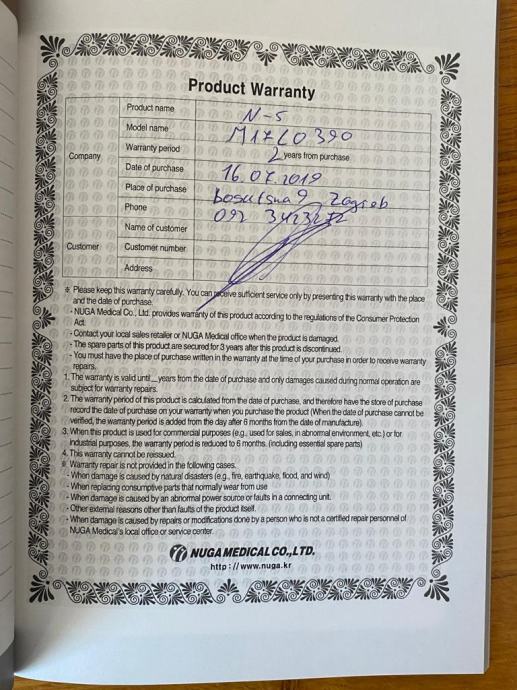 Product Warranty
Company
Product name N-5
Model name M17L0390
Warranty period 2 years from purchase
Date of purchase 16.07.2019
Place of purchase 9 Zagreb
Phone
Customer
Name of customer
Customer number
Address
※ Please keep this warranty carefully. You can receive sufficient service only by presenting this warranty with the place
and the date of purchase.
- NUGA Medical Co., Ltd. provides warranty of this product according to the regulations of the Consumer Protection
Act.
- Contact your local sales retailer or NUGA Medical office when the product is damaged.
- The spare parts of this product are secured for 3 years after this product is discontinued.
- You must have the place of purchase written in the warranty at the time of your purchase in order to receive warranty
repairs.
1. The warranty is valid until__years from the date of purchase and only damages caused during normal operation are
subject for warranty repairs.
2. The warranty period of this product is calculated from the date of purchase, and therefore have the store of purchase
record the date of purchase on your warranty when you purchase the product (When the date of purchase cannot be
verified, the warranty period is added from the day after 6 months from the date of manufacture).
3. When this product is used for commercial purposes (e.g., used for sales, in abnormal environment, etc.) or for
industrial purposes, the warranty period is reduced to 6 months. (including essential spare parts)
4. This warranty cannot be reissued.
※ Warranty repair is not provided in the following cases.
- When damage is caused by natural disasters (e.g., fire, earthquake, flood, and wind)
- When replacing consumptive parts that normally wear from use
- When damage is caused by an abnormal power source or faults in a connecting unit.
- Other external reasons other than faults of the product itself.
- When damage is caused by repairs or modifications done by a person who is not a certified repair personnel of
NUGA Medical's local office or service center.
NUGA MEDICAL CO.,LTD.
http://www.nuga.kr